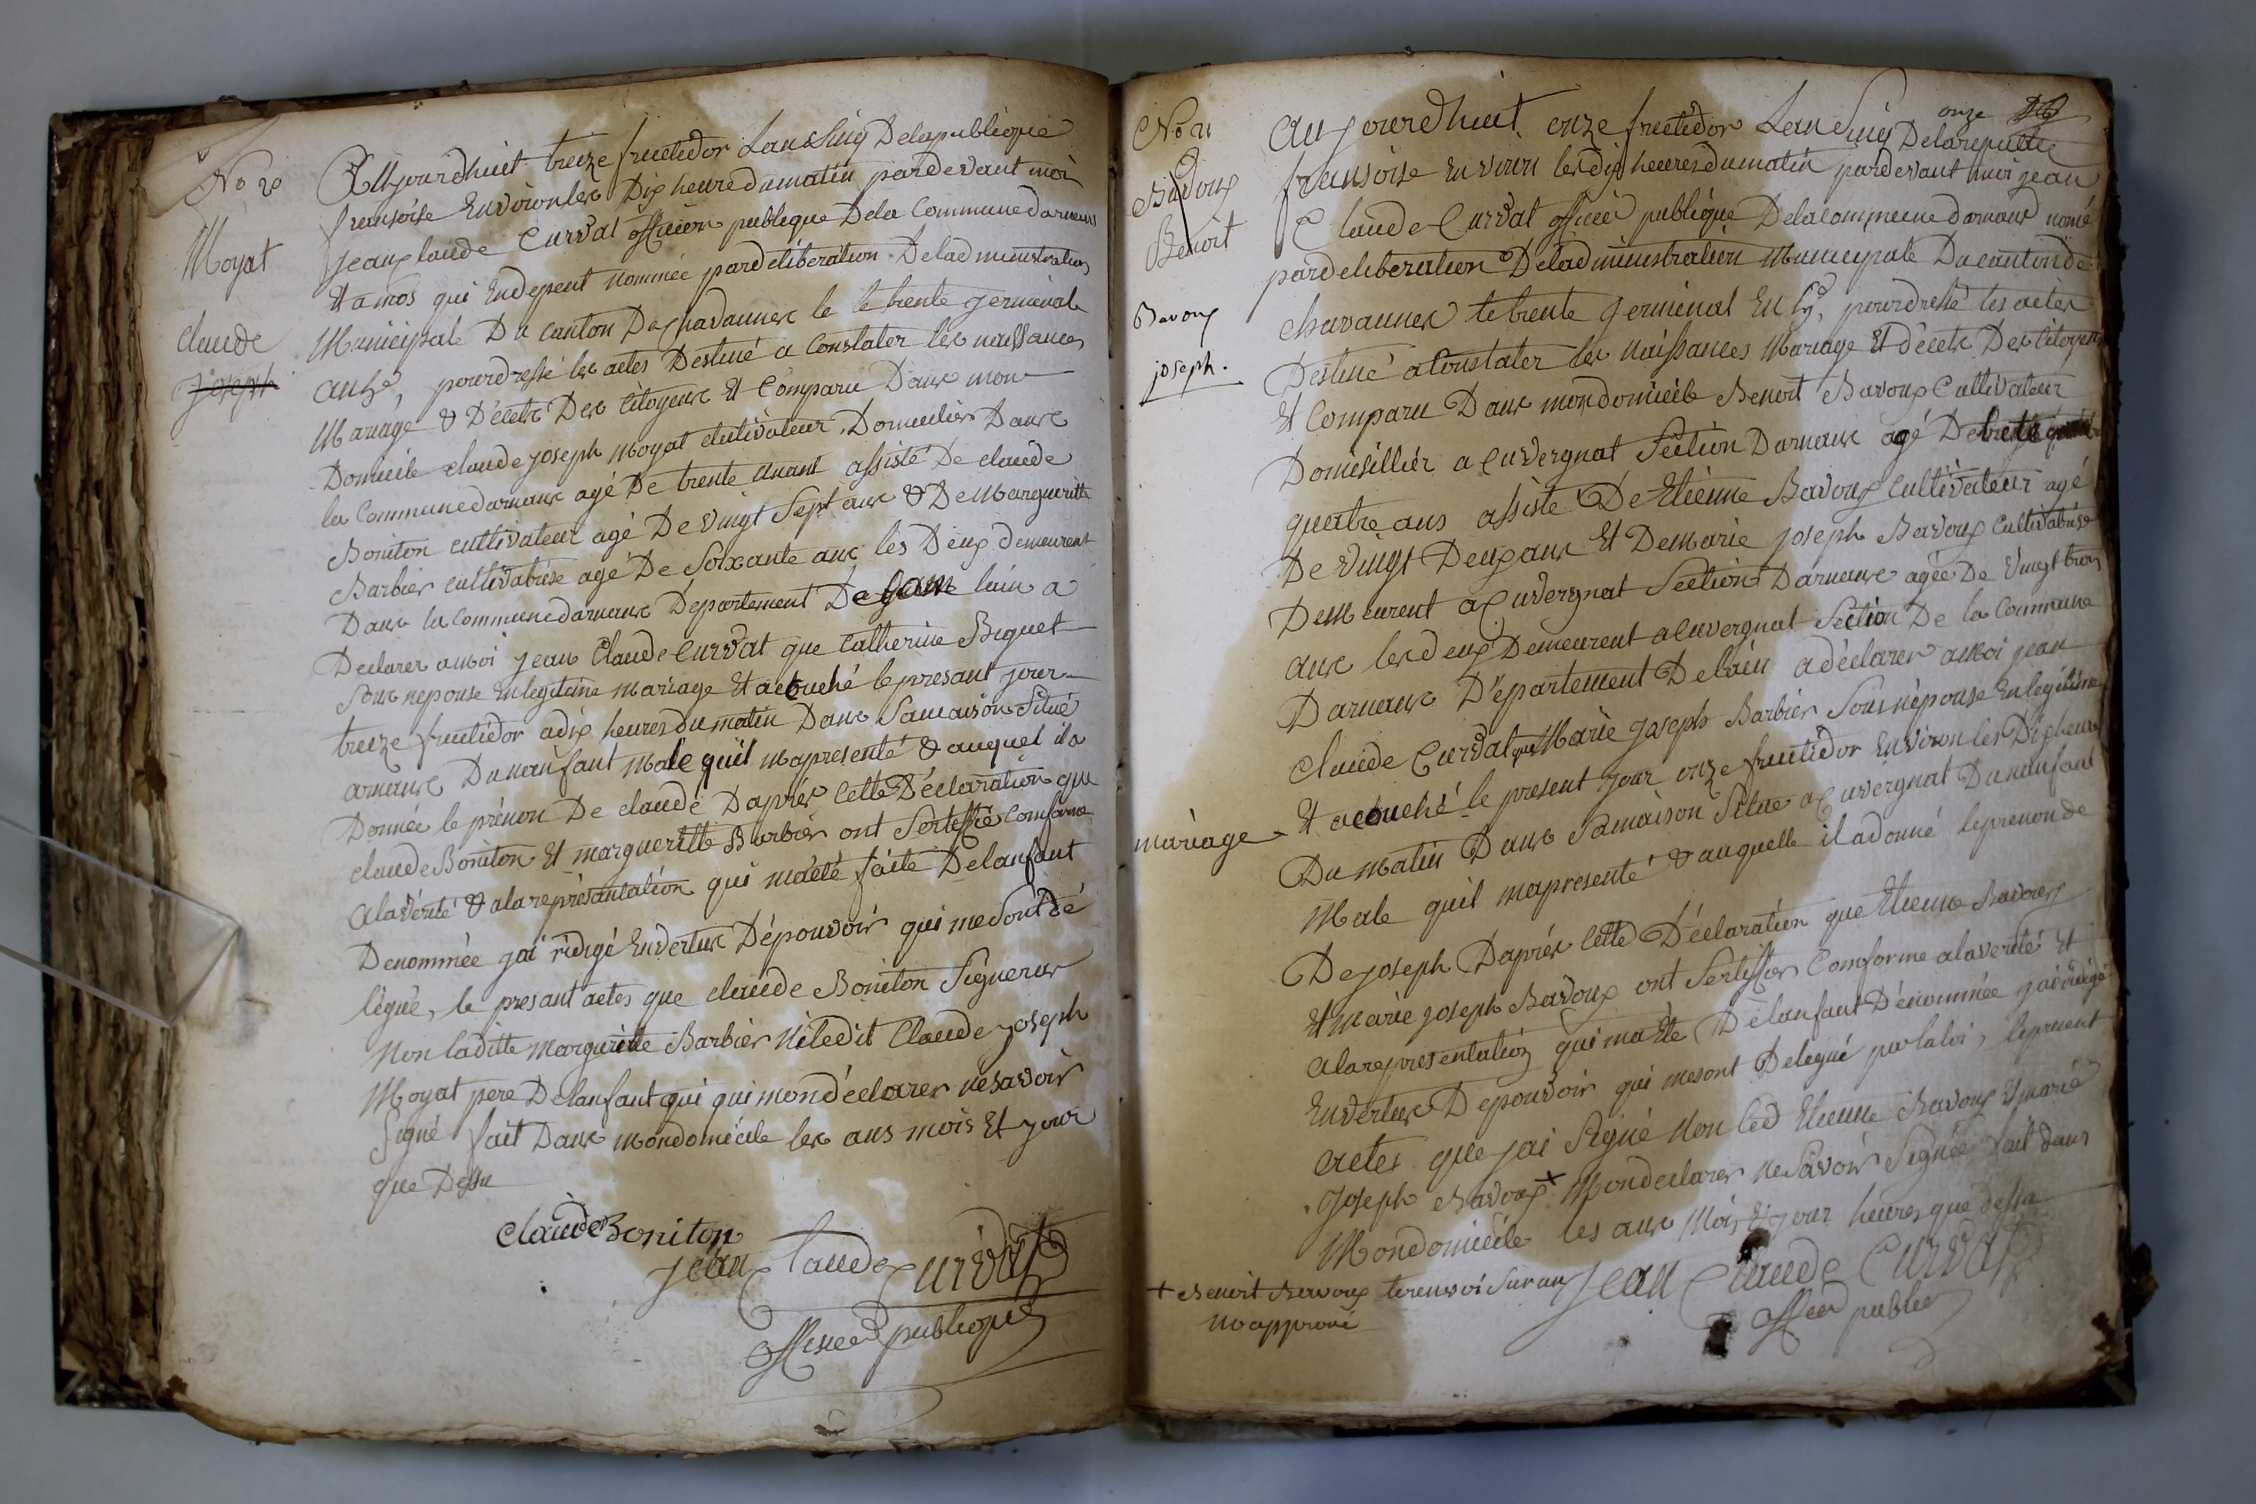 No 20
Moyat
Claude
joseph
Aujourdhuit treize fructidor Lan Sinq Delapublique
fransoise Environ les Dix heure dumatin pardevant moi
jean claude Curvat officier publique Dela Commune darnans
Et amos qui Endepent nommée pardeliberation Deladministration
Municipale Du canton De chavannes le trente germinal
pourdressé les actes Destiné a Constater les naissances
Mariage & Décets Des Citoyens Et Comparu Dans mon
Domicile claude joseph Moyat cultivateur Domicilier Dans
la Commune darnans agé De trente un ans assisté De claude
Boniton cultivateur agé De vingt Sept ans & De Margueritte
Barbier cultivatrise agé De Soixante ans les Deux demeurent
Dans la Commune darnans Departement De lain a
Declarer a moi jean Claude Curvat que Catherine Biguet
Son nepouse En legitime mariage Et acouché le presant jour
treize fructidor a dix heures du matin Dans Samaison Situé
arnans Dunanfant Male quil mapresenté & auquel il a
Donnée le prénon De claude Daprés Cette Déclaration que
claude Boniton Et margueritte Barbier ont Sertiffié Comforme
alavérité & ala représantation qui ma été faite Delanfant
Denommée jai rédigé Envertus Dépouvoir qui me Sont dé
légué, le presant actes que claude Boniton Signerus
Non laditte margueritte Barbier Ni ledit Claude joseph
Moyat pere Delanfant qui qui mon déclarer ne Savoir
Signé fait Dans mondomécile les ans mois Et jour
que Dessu
Claude Boniton
jean Claude Curvat
officier publique
No 21
Bavoux
Benoit
Bavoux
joseph.
mariage
onze
Aujourdhuit onze fructidor Lan Sinq Delarepublic
fransoise Environ les dix heures dumatin pardevant moi jean
Claude Curvat officier publique Delacommune darnans nomé
pardeliberation Deladministration Municipale Ducanton de
chavannes le trente germinal pourdressé les actes
Destiné a Constater les Naissances Mariage Et décets Des Citoyens
Et Comparu Dans mondomicile Benoit Bavoux Cultivateur
Domisillier a Cuvergnat Section Darnans agé De trente
quatre ans assisté De Etienne Bavoux Cultivateur agé
De vingt Deux ans Et Demarie joseph Bavoux Cultivatrise
Demeurent a Cuvergnat Section Darnans agée De vingt trois
ans les deux Demeurent a Cuvergnat Section De la Commune
Darnans Département Delain a déclarer a moi jean
Claude Curvat que Marie joseph Barbier Son népouse En legitime
Et acouché le present jour onze fructidor Environ les Dix heure
Du Matin Dans Samaison Situe a Cuvergnat Dunanfant
Male quil mapresenté & auquelle il a donné leprenon de
De joseph Daprés Cette Déclaration que Etienne Bavoux
Et Marie joseph Bavoux ont Sertiffier Comforme alaverité Et
alarepresentation qui ma Eté Délanfant Dénommée jai rédigé
Envertus Depouvoir qui mesont Delegué par la loi, lepresent
actes que jai Signé Non led Etienne Bavoux Et marie
joseph Bavoux + Mon declarer ne Savoir Signée fait dans
Mondomicile les ans Mois Et jour heures que dessu
+ Benoit Bavoux le renvoi
approuvé
Jean Claude Curvat
officier public